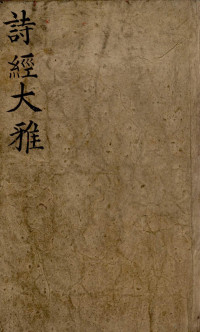 詩經大雅